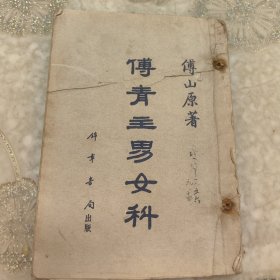 傅山原著
傅青主男女科
錦章書局出版